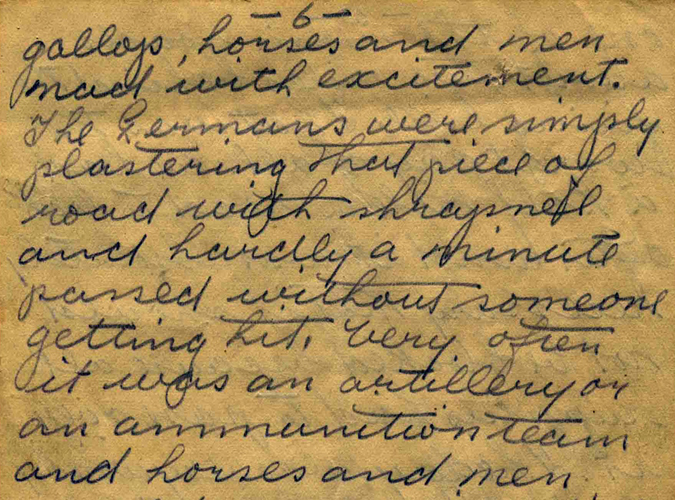 -6-
gallop, horses and men
mad with excitement.
The Germans were simply
plastering that piece of
road with shrapnell
and hardly a minute
passed without someone
getting hit. Very often
it was an artillery or
an ammunition team
and horses and men